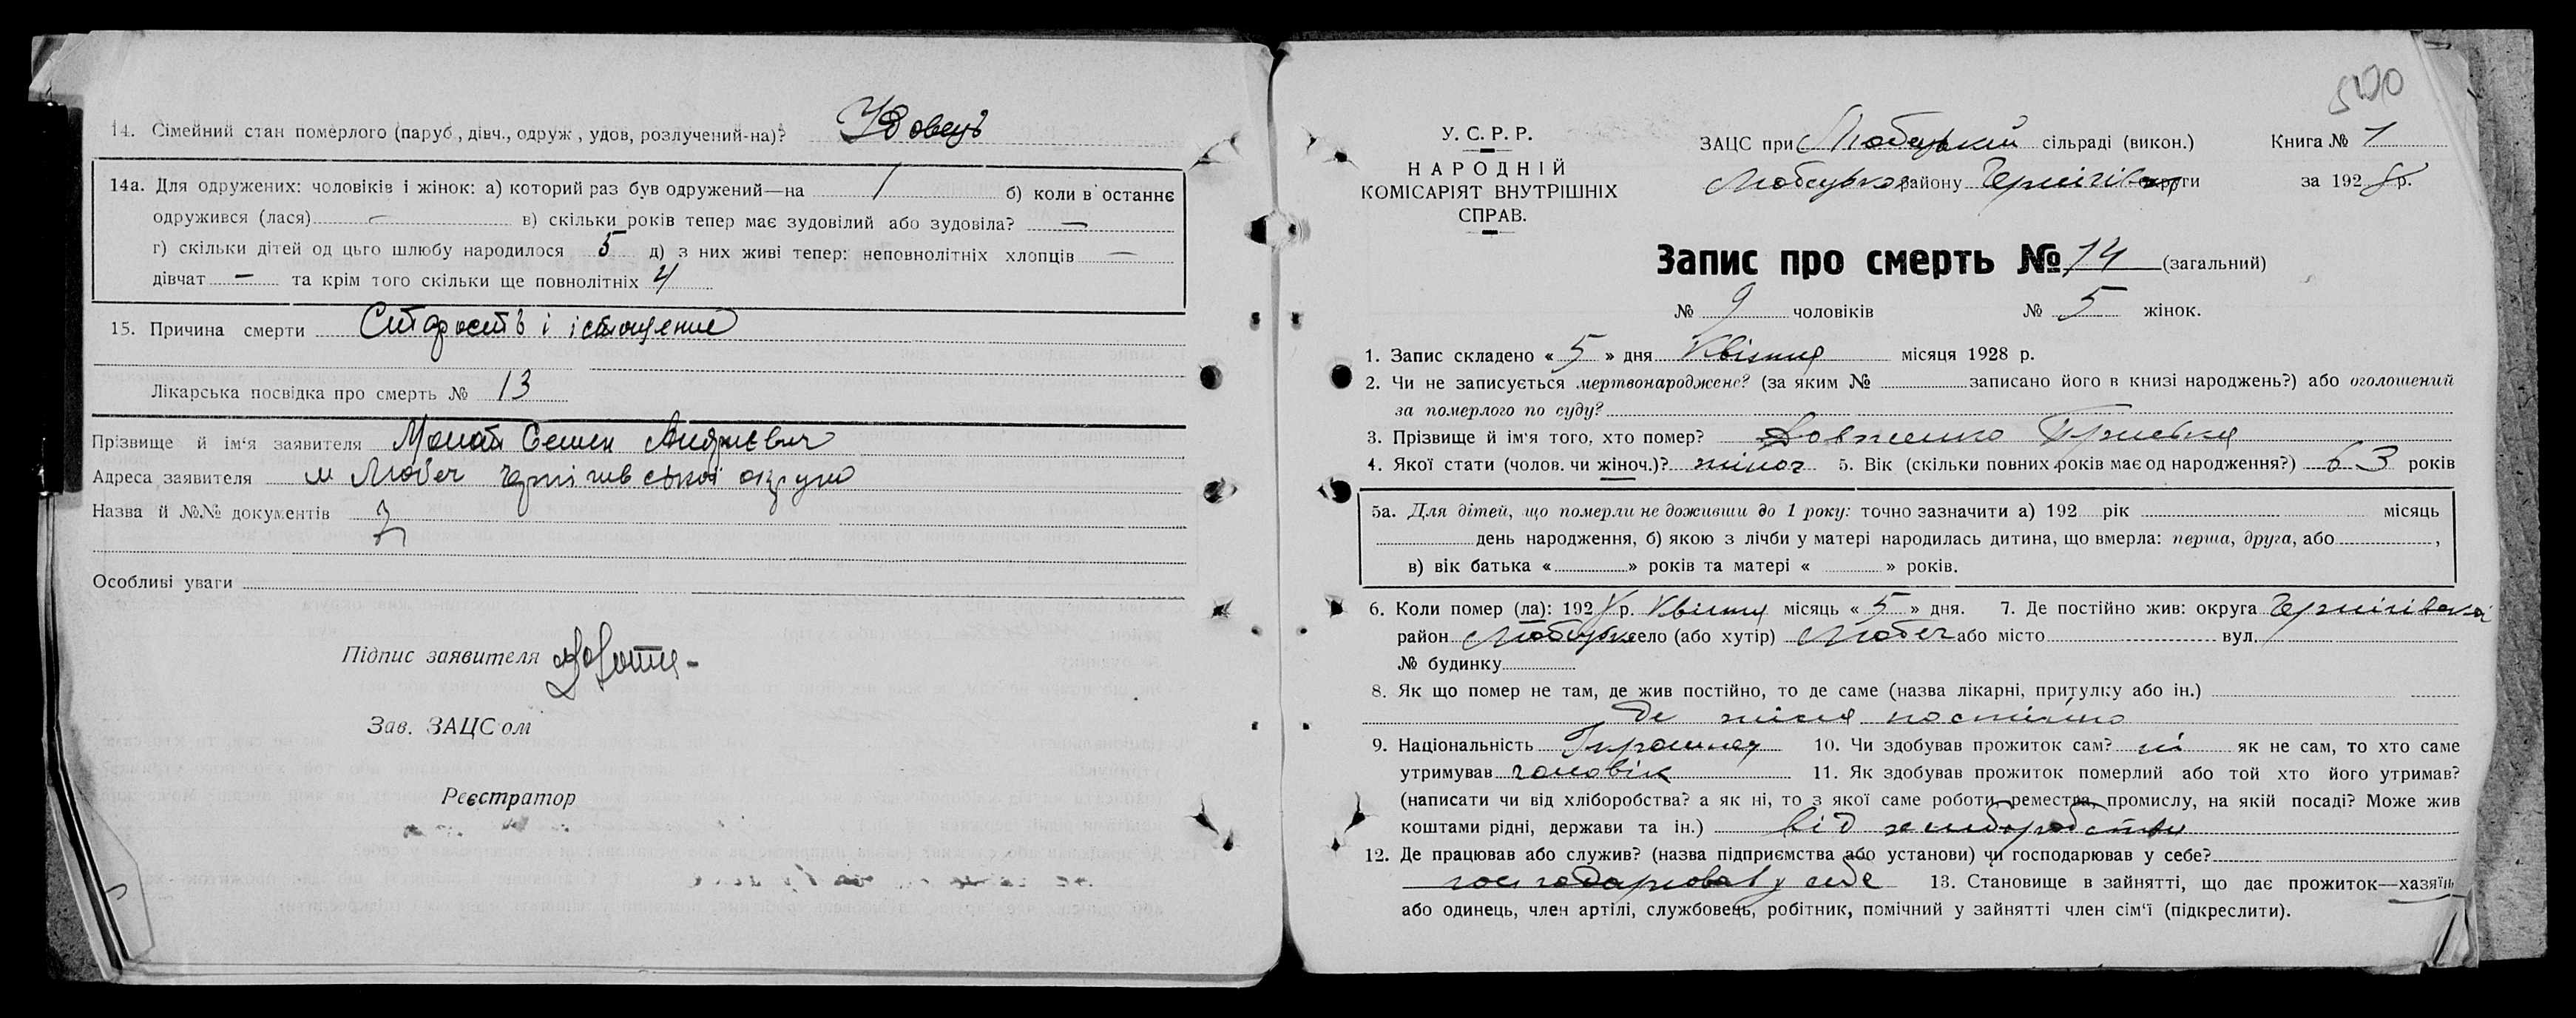 14. Сімейний стан померлого (паруб, дівч., одруж, удов, розлучений-на)? Удовець
14а. Для одружених: чоловіків і жінок: а) которий раз був одружений—на 1 б) коли в останнє
одружився (лася) — в) скільки років тепер має зудовілий або зудовіла? —
г) скільки дітей од цього шлюбу народилося 5 д) з них живі тепер: неповнолітніх хлопців —
дівчат — та крім того скільки ще повнолітніх 4
15. Причина смерти Старость і істощение
Лікарська посвідка про смерть № 13
Прізвище й ім'я заявителя Семен Андриєвич
Адреса заявителя м Любеч Чернігивської округи
Назва й №№ документів
Особливі уваги
Підпис заявителя
Зав. ЗАЦСом
Реєстратор
5100
У. С. Р. Р.
НАРОДНІЙ
КОМІСАРІЯТ ВНУТРІШНІХ
СПРАВ.
ЗАЦС при Любецький сільраді (викон.) Книга № 1
Любецького району Чернігівськ округи за 1928 р.
Запис про смерть № 14 (загальний)
№ 9 чоловіків № 5 жінок.
1. Запис складено « 5 » дня Квітня місяця 1928 р.
2. Чи не записується мертвонароджене? (за яким № записано його в книзі народжень?) або оголошений
за померлого по суду?
3. Прізвище й ім'я того, хто помер? Довженко Приська
4. Якої стати (чолов. чи жіноч.)? жіноч 5. Вік (скільки повних років має од народження?) 63 років
5а. Для дітей, що померли не доживши до 1 року: точно зазначити а) 192 рік місяць
день народження, б) якою з лічби у матері народилась дитина, що вмерла: перша, друга, або ,
в) вік батька « » років та матері « » років.
6. Коли помер (ла): 1928 р. Квітня місяць « 5 » дня. 7. Де постійно жив: округа Чернігівська
район Любецьк село (або хутір) Любеч або місто вул.
№ будинку
8. Як що помер не там, де жив постійно, то де саме (назва лікарні, притулку або ін.)
де жила постійно
9. Національність Українка 10. Чи здобував прожиток сам? ні як не сам, то хто саме
утримував чоловік 11. Як здобував прожиток померлий або той хто його утримав?
(написати чи від хліборобства? а як ні, то з якої саме роботи, ремества, промислу, на якій посаді? Може жив
коштами рідні, держави та ін.) від хліборобства
12. Де працював або служив? (назва підприємства або установи) чи господарював у себе?
господарював у себе 13. Становище в зайнятті, що дає прожиток—хазяїн
або одинець, член артілі, службовець, робітник, помічний у зайнятті член сім'ї (підкреслити).